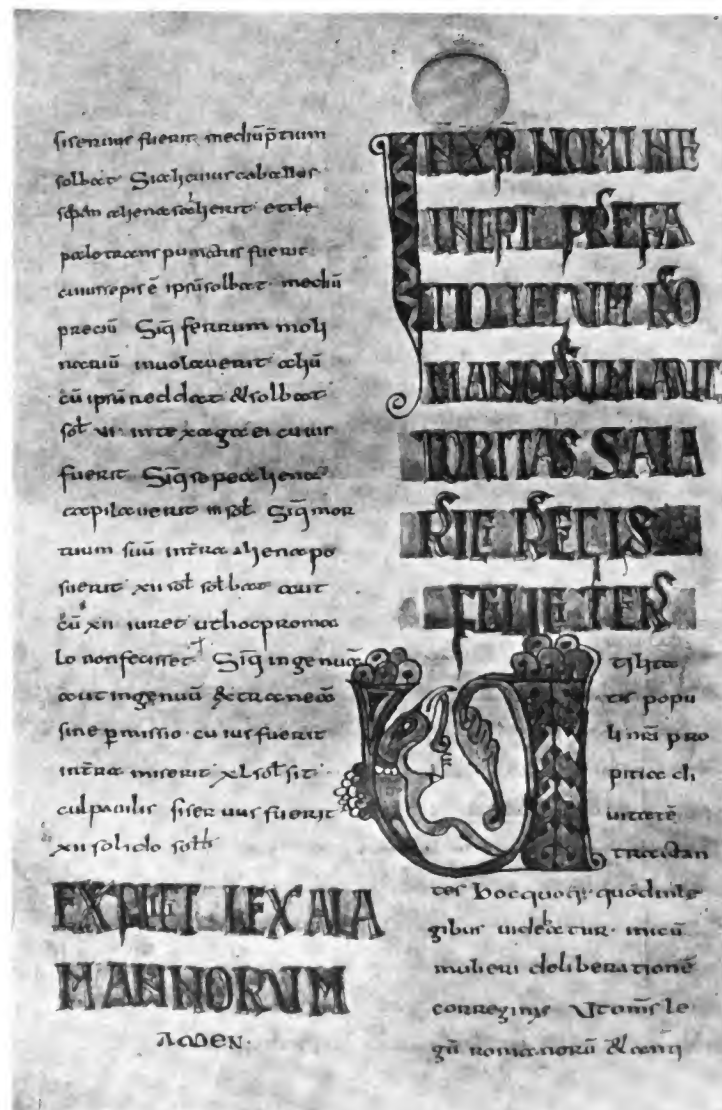 siseruus fuerit mediūp̄tium
solbat Sialicuius caballus
sepem aliena salierit et de
palo transpunctus fuerit
cuiussepis ē ipsūsolbat mediū
preciū Siq̄ ferrum moli
nariū inuolauerit aliū
cū ipsū reddat & solbat
sol vi inte xaga ei cuius
fuerit Siq̄ sepe aliena
capilauerit III sol Siq̄ mor
tuum suū intra aliena po
suerit xii sol solbat aut
cū xii iuret uthocproma
lo nonfecisset Siq̄ ingenuā
aut ingenuū extraneā
sine p̄missio cuiusfuerit
intra miserit xl sol sit
culpauilis siseruus fuerit
xii solido sol
EXPLICIT LEX ALA
MANNORUM
AMEN.
IN XP̄I NOMINE
INCIPI PREFA
TIO LEGUM RO
MANORUM AUC
TORITAS SALA
RICI REGIS
FELICITER
Utilita
tis popu
li nr̄i pro
pitia di
uitatē
tractan
tes hocquoq; quodinle
gibus uidebatur inicū
mulieri deliberationē
corregimus Utomīs le
gū romanorū & anti